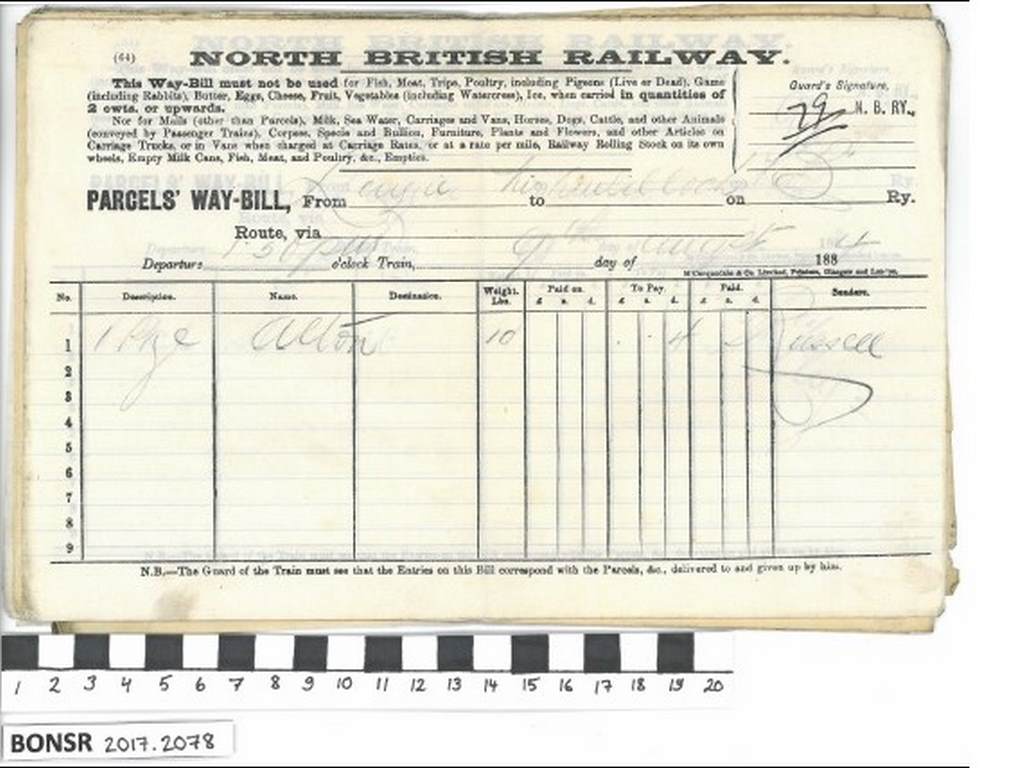 (64) NORTH BRITISH RAILWAY.
This Way-Bill must not be used for Fish, Meat, Tripe, Poultry, including Pigeons (Live or Dead), Game
(including Rabbits), Butter, Eggs, Cheese, Fruit, Vegetables (including Watercress), Ice, when carried in quantities of
2 cwts. or upwards.
Nor for Mails (other than Parcels), Milk, Sea Water, Carriages and Vans, Horses, Dogs, Cattle, and other Animals
(conveyed by Passenger Trains), Corpses, Specie and Bullion, Furniture, Plants and Flowers, and other Articles on
Carriage Trucks, or in Vans when charged at Carriage Rates, or at a rate per mile, Railway Rolling Stock on its own
wheels, Empty Milk Cans, Fish, Meat, and Poultry, &c., Empties.
Guard's Signature,
79 N. B. RY.,
PARCELS' WAY-BILL, From to on Ry.
Route, via
Departure o'clock Train, 9th day of August 1884
M'Corquodale & Co. Limited, Printers, Glasgow and London.
No. Description. Name. Destination. Weight. Lbs. Paid on. £ s. d. To Pay. £ s. d. Paid. £ s. d. Senders.
1 1 Pkge Alton 10 4 Russell
2
3
4
5
6
7
8
9
N.B.—The Guard of the Train must see that the Entries on this Bill correspond with the Parcels, &c., delivered to and given up by him.
1 2 3 4 5 6 7 8 9 10 11 12 13 14 15 16 17 18 19 20
BONSR 2017.2078